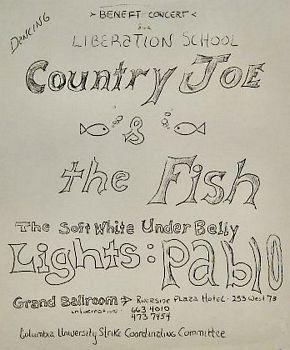 > BENEFT CONCERT <
DANCING
for
LIBERATION SCHOOL
Country JOE
&
the Fish
The Soft White Under Belly
Lights: Pablo
Grand Ballroom → Riverside Plaza Hotel - 253 West 73
information: 663 4010
473 7454
Columbia University Strike Coordinating Committee